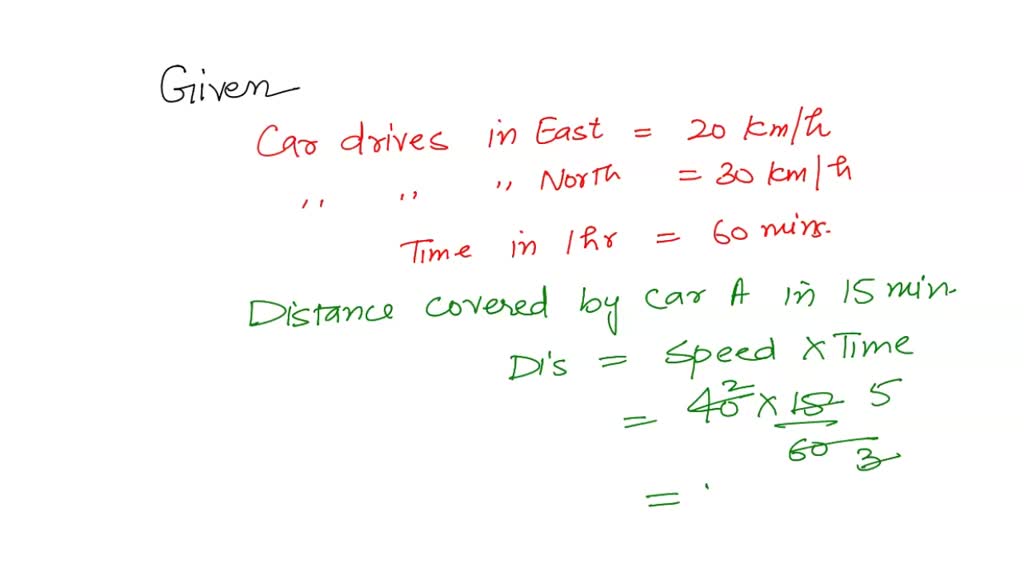 Given
Car drives in East = 20 km/h
,, ,, ,, North = 30 km/h
Time in 1hr = 60 mins.
Distance covered by car A in 15 min.
Dis = Speed × Time
= 40 2 × 15 5
60 3
=